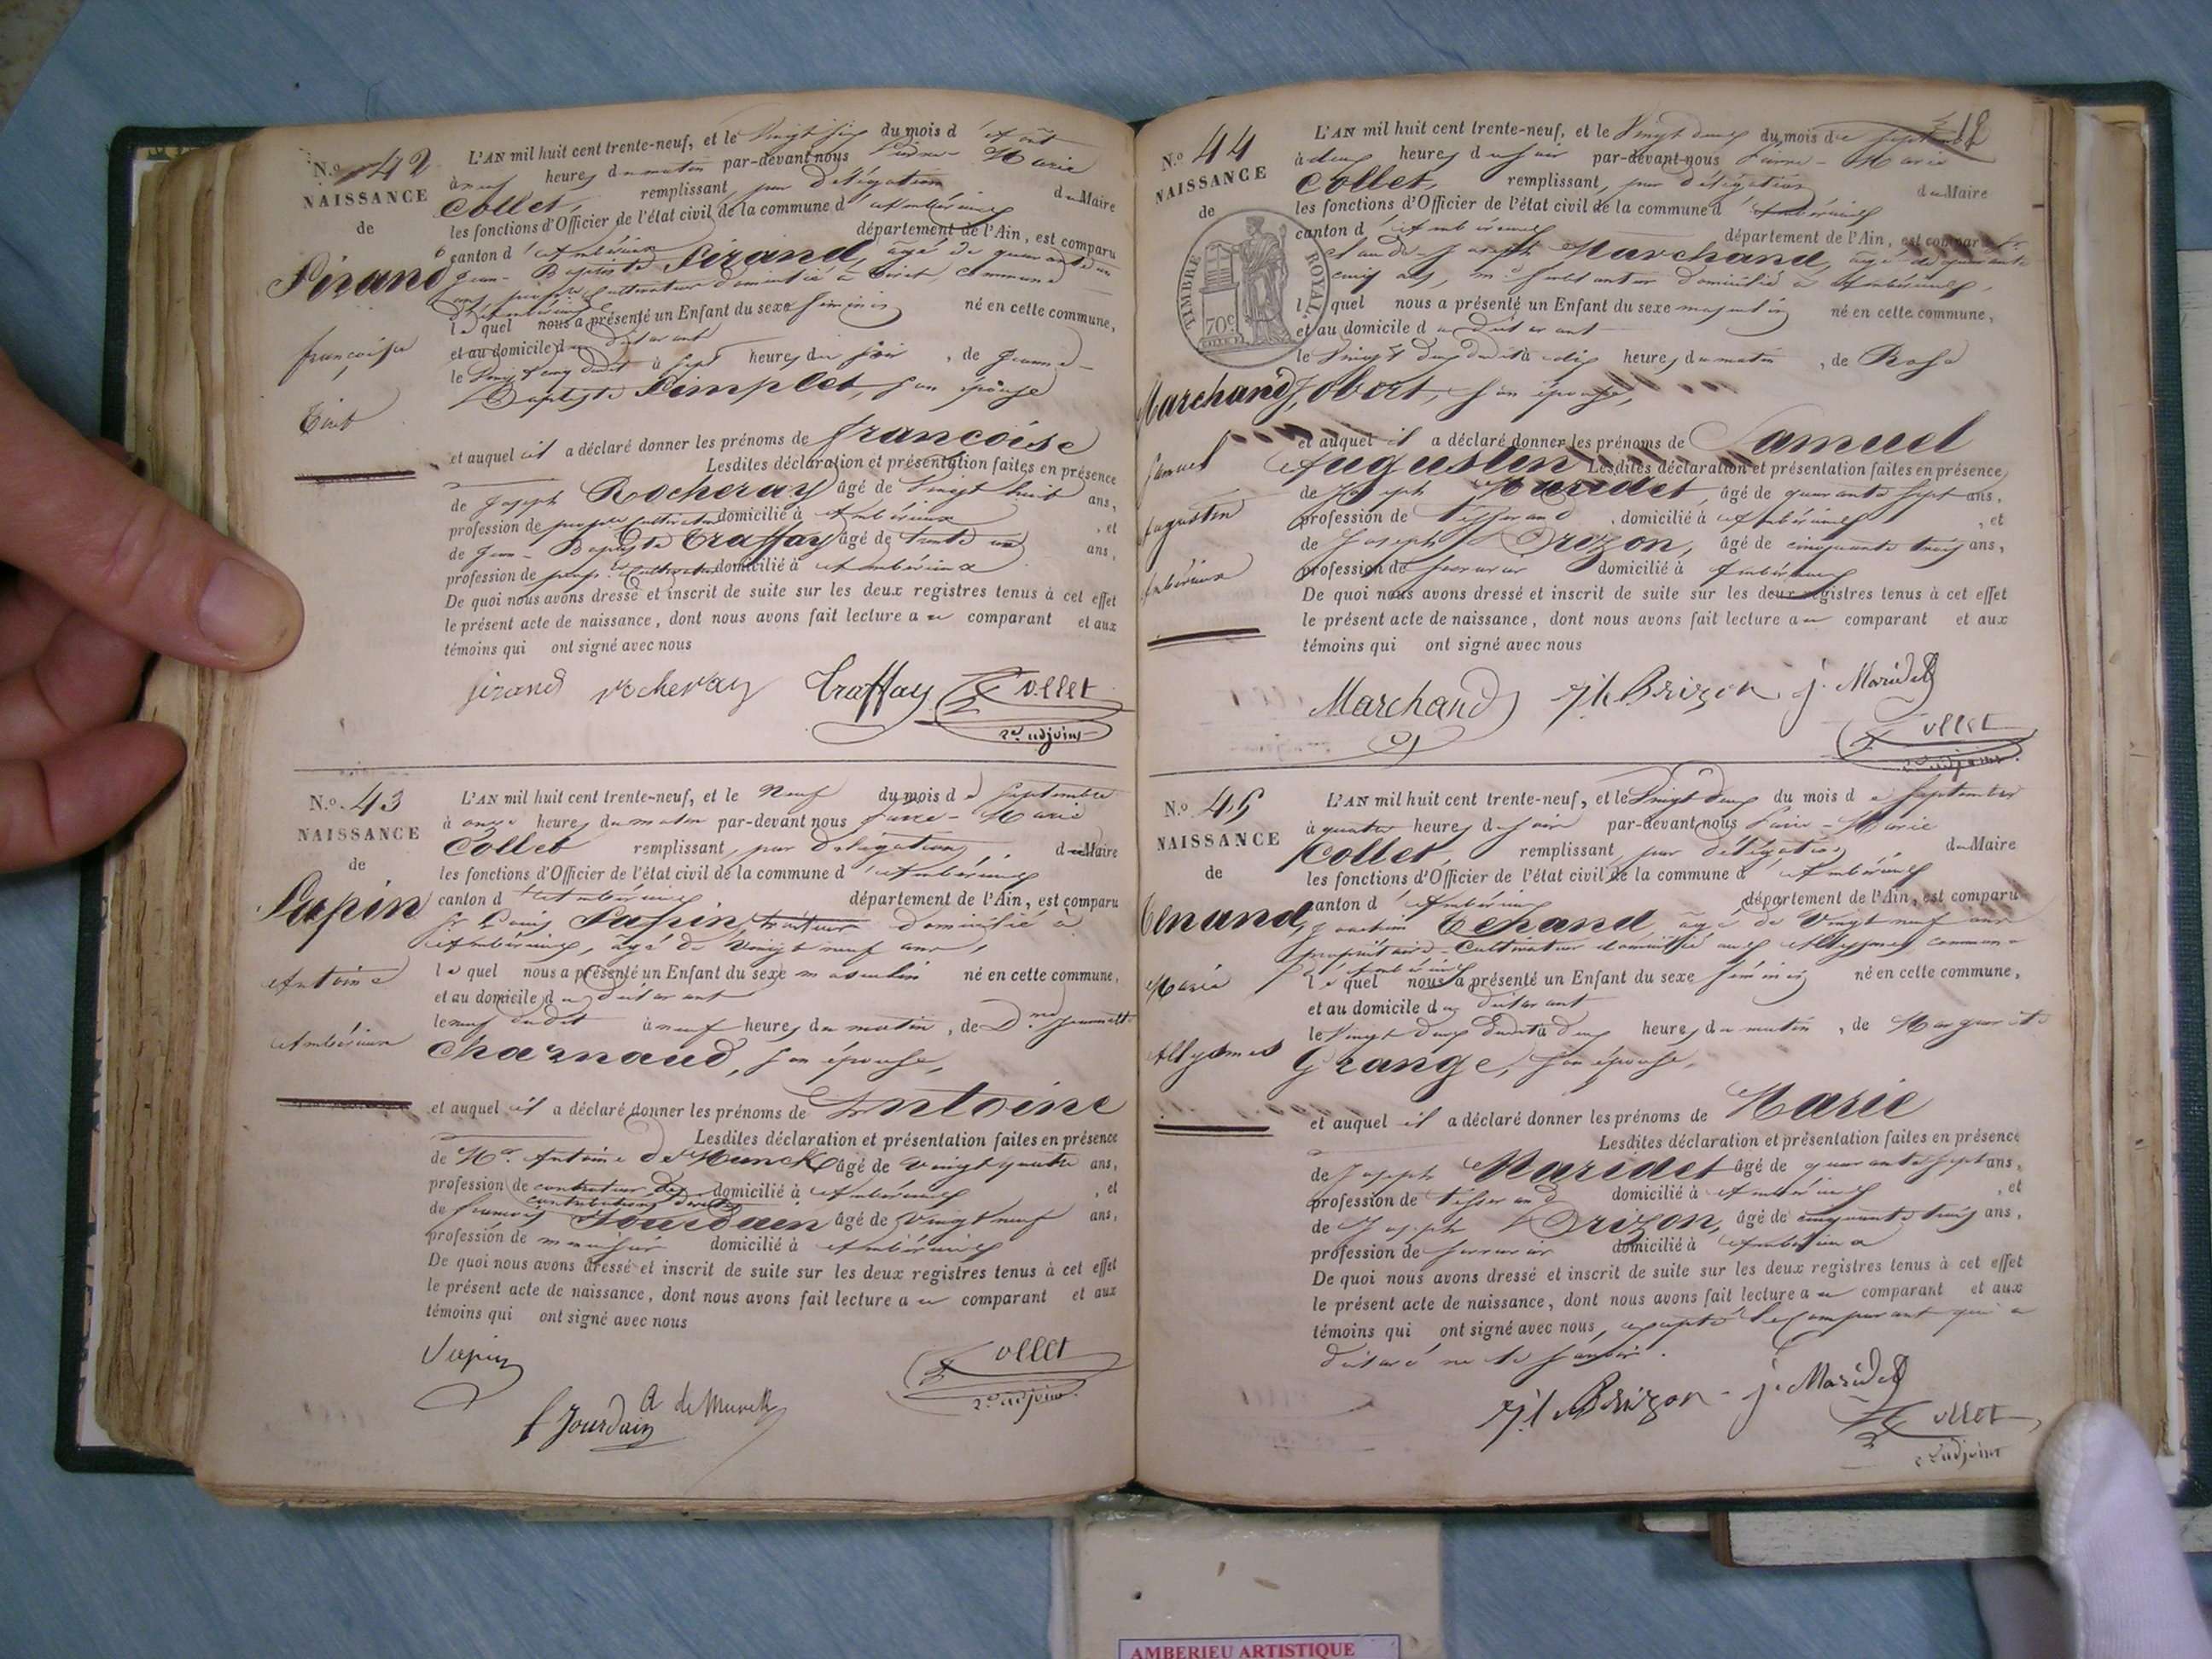 N.o 42
NAISSANCE
de
Sirand
françoise
Tiret
L'AN mil huit cent trente-neuf, et le Vingt six du mois d'Août
à neuf heures du matin par-devant nous Pierre-Marie
Collet, remplissant, par délégation du Maire
les fonctions d'Officier de l'état civil de la commune d'Ambérieux
canton d'Ambérieux département de l'Ain, est comparu
Jean-Baptiste Sirand, âgé de quarante un
ans, propre Cultivateur domicilié à Tiret, commune
d'Ambérieux
lequel nous a présenté un Enfant du sexe féminin né en cette commune,
et au domicile du déclarant
le Vingt cinq dudit à sept heures du soir, de Jeanne-
Baptiste Simplet, son épouse
et auquel il a déclaré donner les prénoms de françoise
Lesdites déclaration et présentation faites en présence
de Joseph Rocheray âgé de Vingt huit ans,
profession de propre Cultivateur domicilié à Ambérieux, et
de Jean-Baptiste Traffay âgé de trente un ans,
profession de prop.re Cultivateur domicilié à Ambérieux
De quoi nous avons dressé et inscrit de suite sur les deux registres tenus à cet effet
le présent acte de naissance, dont nous avons fait lecture au comparant et aux
témoins qui ont signé avec nous
Sirand Rocheray Traffay Collet
2.d adjoint
N.o 43
NAISSANCE
de
Lupin
Antoine
Ambérieux
L'AN mil huit cent trente-neuf, et le Neuf du mois de Septembre
à onze heures du matin par-devant nous Pierre-Marie
Collet remplissant, par Délégation du Maire
les fonctions d'Officier de l'état civil de la commune d'Ambérieux
canton d'Ambérieux département de l'Ain, est comparu
Sr. Louis Lupin, domicilié à
Ambérieux, âgé de Vingt neuf ans,
lequel nous a présenté un Enfant du sexe masculin né en cette commune,
et au domicile du déclarant
le neuf dudit à neuf heures du matin, de D.me Jeannette
Charnaud, son épouse,
et auquel il a déclaré donner les prénoms de Antoine
Lesdites déclaration et présentation faites en présence
de Mr. Antoine de Munck âgé de Vingt quatre ans,
profession de contrôleur des domicilié à Ambérieux, et
contributions directes
de françois Jourdain âgé de Vingt neuf ans,
profession de menuisier domicilié à Ambérieux
De quoi nous avons dressé et inscrit de suite sur les deux registres tenus à cet effet
le présent acte de naissance, dont nous avons fait lecture au comparant et aux
témoins qui ont signé avec nous
Lupin Collet
2.d adjoint
f Jourdain A de Munck
12
N.o 44
NAISSANCE
de
TIMBRE ROYAL
70c
Marchand
Samuel
Augustin
Ambérieux
L'AN mil huit cent trente-neuf, et le Vingt deux du mois de Septembre
à deux heures du soir par-devant nous Pierre-Marie
Collet, remplissant, par délégation du Maire
les fonctions d'Officier de l'état civil de la commune d'Ambérieux
canton d'Ambérieux département de l'Ain, est comparu Sr.
Claude-Joseph Marchand, âgé de quarante
cinq ans, domicilié à Ambérieux,
lequel nous a présenté un Enfant du sexe masculin né en cette commune,
et au domicile du déclarant
le Vingt deux dudit à dix heures du matin, de Rose
Jobert, son épouse,
et auquel il a déclaré donner les prénoms de Samuel
Augustin Lesdites déclaration et présentation faites en présence
de Joseph Maridet, âgé de quarante sept ans,
profession de tisserand, domicilié à Ambérieux, et
de Joseph Brizon, âgé de cinquante trois ans,
profession de serrurier domicilié à Ambérieux
De quoi nous avons dressé et inscrit de suite sur les deux registres tenus à cet effet
le présent acte de naissance, dont nous avons fait lecture au comparant et aux
témoins qui ont signé avec nous
Marchand Jh Brizon j. Maridet
Collet
2.d adjoint
N.o 45
NAISSANCE
de
Tenand
Marie
Allysmes
L'AN mil huit cent trente-neuf, et le Vingt deux du mois de Septembre
à quatre heures du soir par-devant nous Pierre-Marie
Collet, remplissant, par délégation du Maire
les fonctions d'Officier de l'état civil de la commune d'Ambérieux
canton d'Ambérieux département de l'Ain, est comparu
Joachim Tenand âgé de Vingt neuf ans
propriétaire-Cultivateur domicilié aux Allysmes commune
d'Ambérieux
lequel nous a présenté un Enfant du sexe féminin né en cette commune,
et au domicile du déclarant
le Vingt deux dudit à deux heures du matin, de Marguerite
Grange, son épouse,
et auquel il a déclaré donner les prénoms de Marie
Lesdites déclaration et présentation faites en présence
de Joseph Maridet âgé de quarante sept ans,
profession de tisserand domicilié à Ambérieux, et
de Joseph Brizon, âgé de cinquante trois ans,
profession de serrurier domicilié à Ambérieux
De quoi nous avons dressé et inscrit de suite sur les deux registres tenus à cet effet
le présent acte de naissance, dont nous avons fait lecture au comparant et aux
témoins qui ont signé avec nous, excepté le comparant qui a
déclaré ne le savoir.
Jh Brizon j. Maridet
Collet
2.d adjoint
AMBERIEU ARTISTIQUE